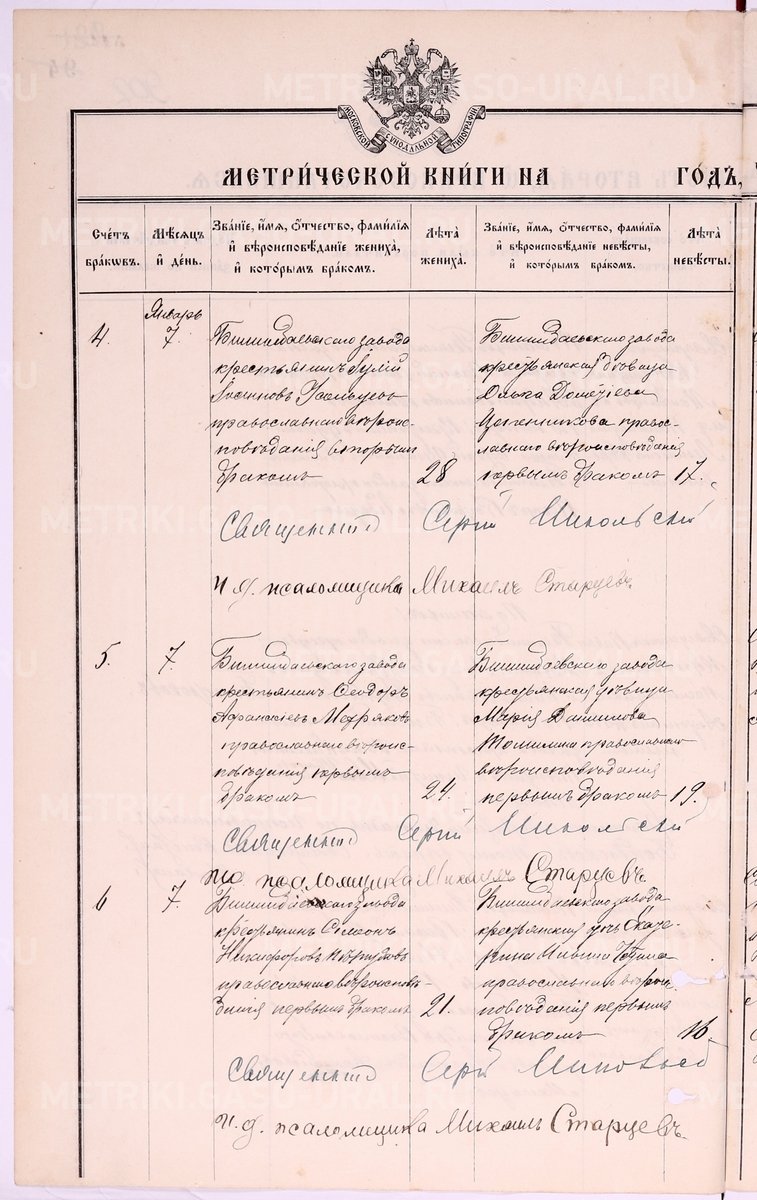 МОСКОВСКОЙ СѴНОДАЛЬНОЙ ТИПОГРАФІИ
МЕТРИ́ЧЕСКОЙ КНИ́ГИ НА ГО́ДЪ,
Сче́тъ бра́кѡвъ.
Мѣ́сяцъ и҆ де́нь.
Зва́нїе, и҆́мя, ѻ҆́тчество, фами́лїя и҆ вѣроисповѣ́данїе жениха̀, и҆ кото́рымъ бра́комъ.
Лѣ́та жениха̀.
Зва́нїе, и҆́мя, ѻ҆́тчество, фами́лїя и҆ вѣроисповѣ́данїе невѣ́сты, и҆ кото́рымъ бра́комъ.
Лѣ́та невѣ́сты.
Январь
4. 7.
Билимбаевскаго завода
крестьянинъ Іулій
православнаго вѣроис-
повѣданія вторымъ
бракомъ
28
Билимбаевскаго завода
крестьянская дѣвица
Ольга Дометіева
православнаго вѣроисповѣданія
первымъ бракомъ
17.
Священникъ Сергій Никольскій
И. д. псаломщика Михаилъ Старцевъ.
5. 7.
Билимбаевскаго завода
крестьянинъ Ѳеодоръ
Афанасіевъ
православнаго вѣроис-
повѣданія первымъ
бракомъ
24.
Билимбаевскаго завода
крестьянская дѣвица
Марія Данилова
Томилина православнаго
вѣроисповѣданія
первымъ бракомъ
19.
Священникъ Сергій Никольскій
псаломщика Михаилъ Старцевъ
6 7.
Билимбаевскаго завода
крестьянинъ Сѵмеонъ
Никифоровъ
православнаго вѣроисповѣ-
данія первымъ бракомъ
21.
Билимбаевскаго завода
крестьянская дѣв. Екате-
рина
православнаго вѣроис-
повѣданія первымъ
бракомъ
16.
Священникъ Сергій Никольскій
И. д. псаломщика Михаилъ Старцевъ.
METRIKI.GASO-URAL.RU